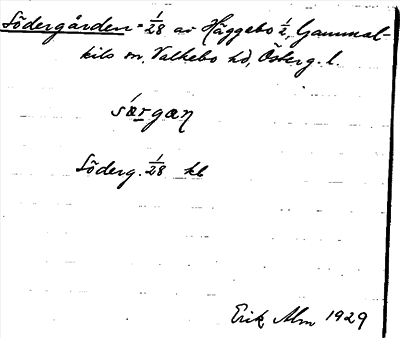 Södergården = 1/28 av Häggebo 1/2, Gammal-
kils sn. Valkebo hd, Österg. l.
særgan
Söderg. 1/28 kb
Erik Alm 1929